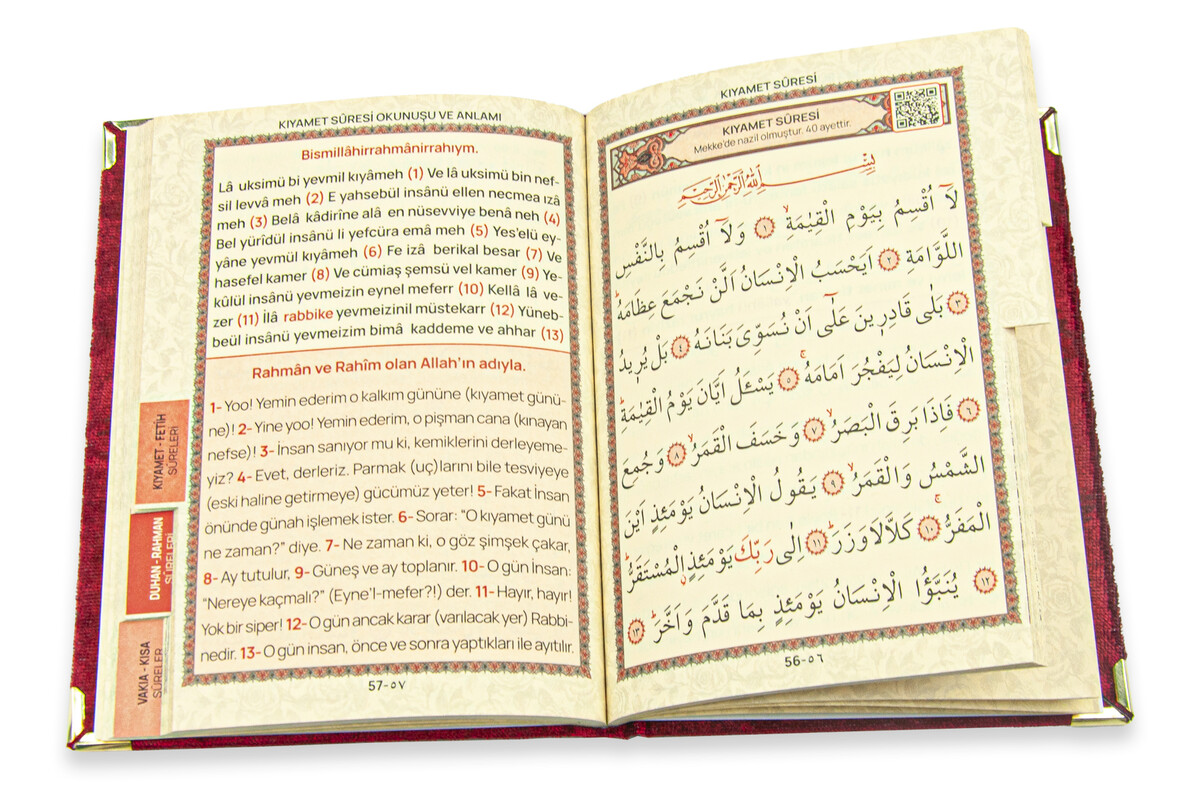 KIYAMET SÛRESİ
KIYAMET SÛRESİ
Mekke'de nazil olmuştur. 40 ayettir.
بِسْمِ اللّٰهِ الرَّحْمٰنِ الرَّحِيمِ
لَٓا اُقْسِمُ بِيَوْمِ الْقِيٰمَةِۙ ﴿١﴾ وَلَٓا اُقْسِمُ بِالنَّفْسِ
اللَّوَّامَةِ ﴿٢﴾ اَيَحْسَبُ الْاِنْسَانُ اَلَّنْ نَجْمَعَ عِظَامَهُۜ
﴿٣﴾ بَلٰى قَادِرِينَ عَلٰٓى اَنْ نُسَوِّىَ بَنَانَهُ ﴿٤﴾ بَلْ يُرِيدُ
الْاِنْسَانُ لِيَفْجُرَ اَمَامَهُۚ ﴿٥﴾ يَسْـَٔلُ اَيَّانَ يَوْمُ الْقِيٰمَةِۜ
﴿٦﴾ فَاِذَا بَرِقَ الْبَصَرُۙ ﴿٧﴾ وَخَسَفَ الْقَمَرُۙ ﴿٨﴾ وَجُمِعَ
الشَّمْسُ وَالْقَمَرُۙ ﴿٩﴾ يَقُولُ الْاِنْسَانُ يَوْمَئِذٍ اَيْنَ
الْمَفَرُّۚ ﴿١٠﴾ كَلَّا لَا وَزَرَۜ ﴿١١﴾ اِلٰى رَبِّكَ يَوْمَئِذٍۨ الْمُسْتَقَرُّۜ
﴿١٢﴾ يُنَبَّؤُا الْاِنْسَانُ يَوْمَئِذٍ بِمَا قَدَّمَ وَاَخَّرَۜ ﴿١٣﴾
56-٥٦
KIYAMET SÛRESİ OKUNUŞU VE ANLAMI
Bismillâhirrahmânirrahıym.
Lâ uksimü bi yevmil kıyâmeh (1) Ve lâ uksimü bin nef-
sil levvâ meh (2) E yahsebül insânü ellen necmea ızâ
meh (3) Belâ kâdirîne alâ en nüsevviye benâ neh (4)
Bel yürîdül insânü li yefcüra emâ meh (5) Yes'elü ey-
yâne yevmül kıyâmeh (6) Fe izâ berikal besar (7) Ve
hasefel kamer (8) Ve cümiaş şemsü vel kamer (9) Ye-
kûlül insânü yevmeizin eynel meferr (10) Kellâ lâ ve-
zer (11) İlâ rabbike yevmeizinil müstekarr (12) Yüneb-
beül insânü yevmeizim bimâ kaddeme ve ahhar (13)
Rahmân ve Rahîm olan Allah'ın adıyla.
1- Yoo! Yemin ederim o kalkım gününe (kıyamet günü-
ne)! 2- Yine yoo! Yemin ederim, o pişman cana (kınayan
nefse)! 3- İnsan sanıyor mu ki, kemiklerini derleyeme-
yiz? 4- Evet, derleriz. Parmak (uç)larını bile tesviyeye
(eski haline getirmeye) gücümüz yeter! 5- Fakat İnsan
önünde günah işlemek ister. 6- Sorar: "O kıyamet günü
ne zaman?" diye. 7- Ne zaman ki, o göz şimşek çakar,
8- Ay tutulur, 9- Güneş ve ay toplanır. 10- O gün İnsan:
"Nereye kaçmalı?" (Eyne'l-mefer?!) der. 11- Hayır, hayır!
Yok bir siper! 12- O gün ancak karar (varılacak yer) Rabbi-
nedir. 13- O gün insan, önce ve sonra yaptıkları ile ayıtılır.
57-٥٧
KIYAMET - FETİH
SÛRELERİ
DUHAN - RAHMAN
SÛRELERİ
VAKIA - KISA
SÛRELER